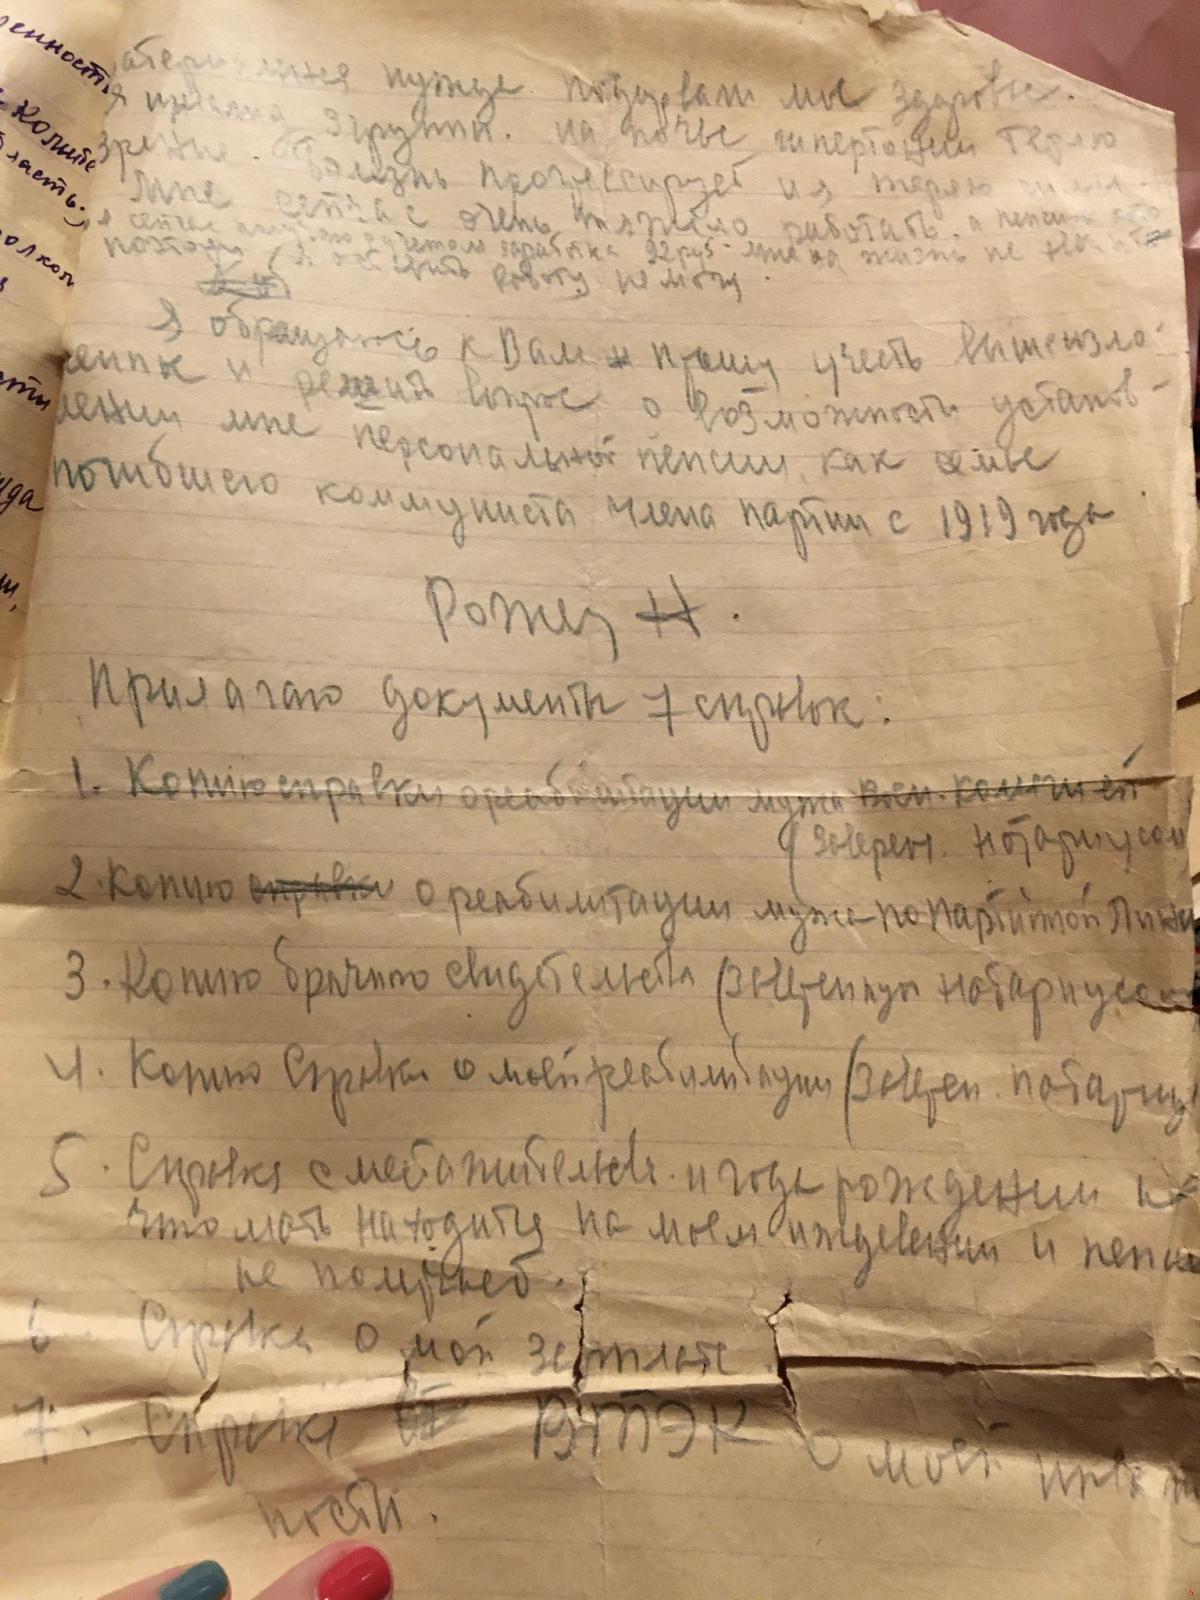 енность
Колыме
власть.
атериальная нужда подорвали мое здоровье.
Я инвалид 3 группы. на почве гипертонии теряю
зрение. Болезнь прогрессирует и я теряю силы.
Мне сейчас очень тяжело работать. а пенсии
я сейчас с учетом заработка 92 руб мне на жизнь не
поэтому я оставить работу не могу.
Я обращаюсь к Вам и прошу учесть вышеизло-
женное и решить вопрос о возможности установ-
лении мне персональной пенсии, как семье
погибшего коммуниста члена партии с 1919 года
Н.
Прилагаю документы 7 справок:
1. Копию справки о реабилитации мужа воен. коллегией
(Заверен. нотариусом
2. Копию справки о реабилитации мужа по партийной линии
3. Копию брачного свидетельства (заверенную нотариусом
4. Копию Справки о моей реабилитации (Заверен. нотариу
5. Справка с местажительства. и года рождении
что мать находится на моем иждевении и пенси
не получает.
6 Справка о моей зарплате.
7. Справка ВТЭК о моей инвалид
ности.